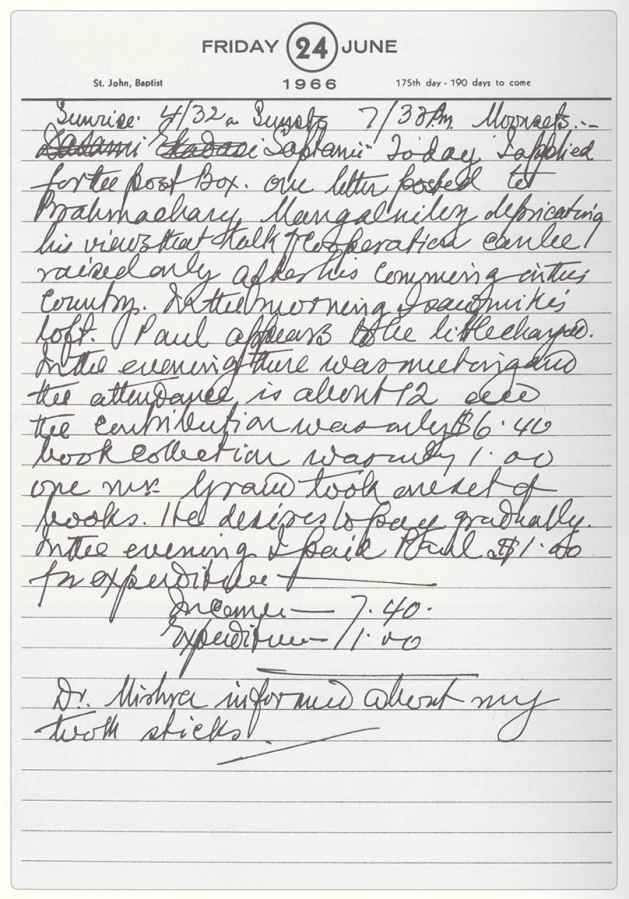 FRIDAY 24 JUNE
St. John, Baptist 1966 175th day - 190 days to come
Sunrise: 4/32 a Sunsets 7/33 P.M. Moonsets..--
Dasami Ekadasi Saptami" Today I applied
for the Post Box. one letter posted to
Brahmachary Mangalniloy depricating
his views that talk of cooperation can be
raised only after his comming in this
Country. In the morning I saw
loft. Paul appears to be little changed.
In the evening there was meeting and
the attendance is about 12 and
the contribution was only $6.40
book collection was only 1.00
one mr. took one set of
books. He desires to pay gradually.
In the evening I paid Paul $1.00
for expenditure
Income — 7.40.
Expenditure — 1.00
Dr. Mishra informed about my
tooth sticks